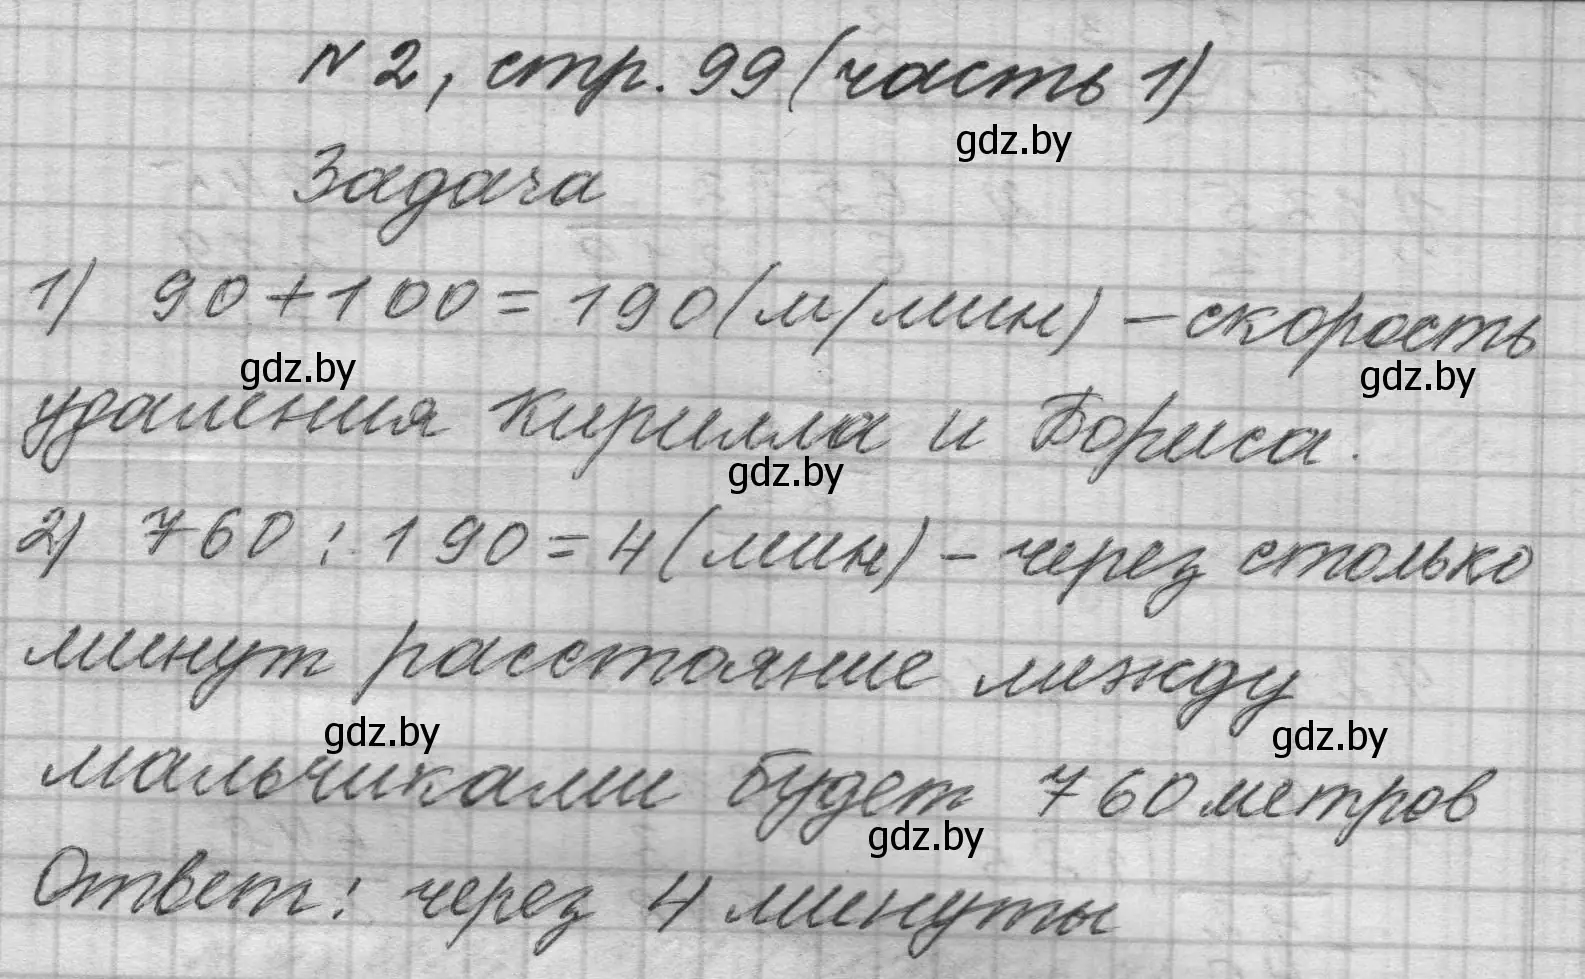 N 2, стр. 99 (часть 1)
gdz.by
Задача
1) 90 + 100 = 190 (м/мин) - скорость
gdz.by gdz.by
удаления Кирилла и Бориса.
gdz.by
2) 760 : 190 = 4 (мин) - через столько
минут расстояние между
gdz.by gdz.by
мальчиками будет 760 метров
gdz.by
Ответ: через 4 минуты